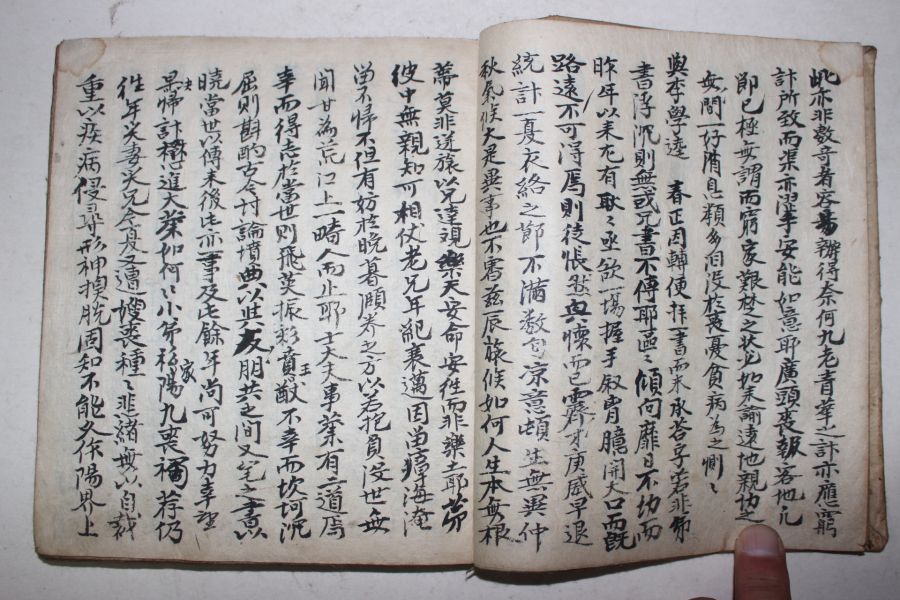 此亦非數奇者容易辦得奈何九老青華之計亦雇窮
計所致而渠亦濩事安能如意耶廣頭喪報客地
即已極毋謂而窮家艱楚之狀如來諭遠地親切之
間一好消息額多汨沒於喪憂貧病為之惻〻
與本學逵 春正因轉便拜一書而未承答字實非常
書序況則無或兄書不傳耶區〻傾向靡日不切而
昨年以来尤有耿〻亟欲一場握手叙胷臆開大口而旣
路遠不可得焉則徒悵然興懷而已霽月庚威早退
統計一夏炎絡之節不滿數旬凉意頓生無異仲
秋氣候大是異事也不審玆辰旅候如何人生本無根
蔕莫非逆旅以兄達觀樂天安命安往而非樂土耶第
彼中無親知可相仗老兄年紀衰邁因當瘴海淹
留不悌不但有妨於晩暮頤養之方以若抱負沒世無
聞甘為荒江上一畸人而止耶士大夫事業有二道焉
幸而得志於當世則飛英振彩賁王猷不幸而坎坷沉
屈則斟酌古今討論墳典以與友朋共之間又笔之書以
曉當世以傳来後此亦一事及此餘年尚可努力幸望
决歸計懋進大業如何〻小弟移家陽九喪禍荐仍
往年哭妻哭兄今夏又遭嫂喪種〻悲緒無以自裁
重以疾病侵尋形神換脱固知不能久作陽界上